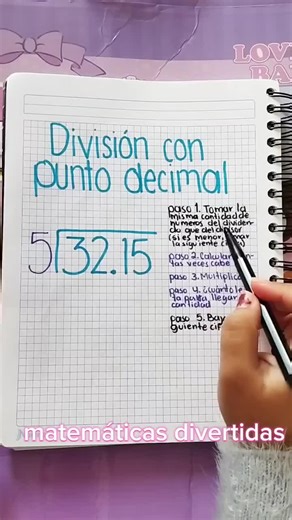 LOVE
División con
punto decimal
paso 1. Tomar la
misma cantidad de
números del dividen-
do que del divisor
(si es menor, tomar
la siguiente
5 32.15
paso 2. Calcular
tas veces cabe
paso 3. Multiplic
paso 4. ¿cuánto le
fa para llegar
cantidad
paso 5. Baj
guiente ci
matemáticas divertidas